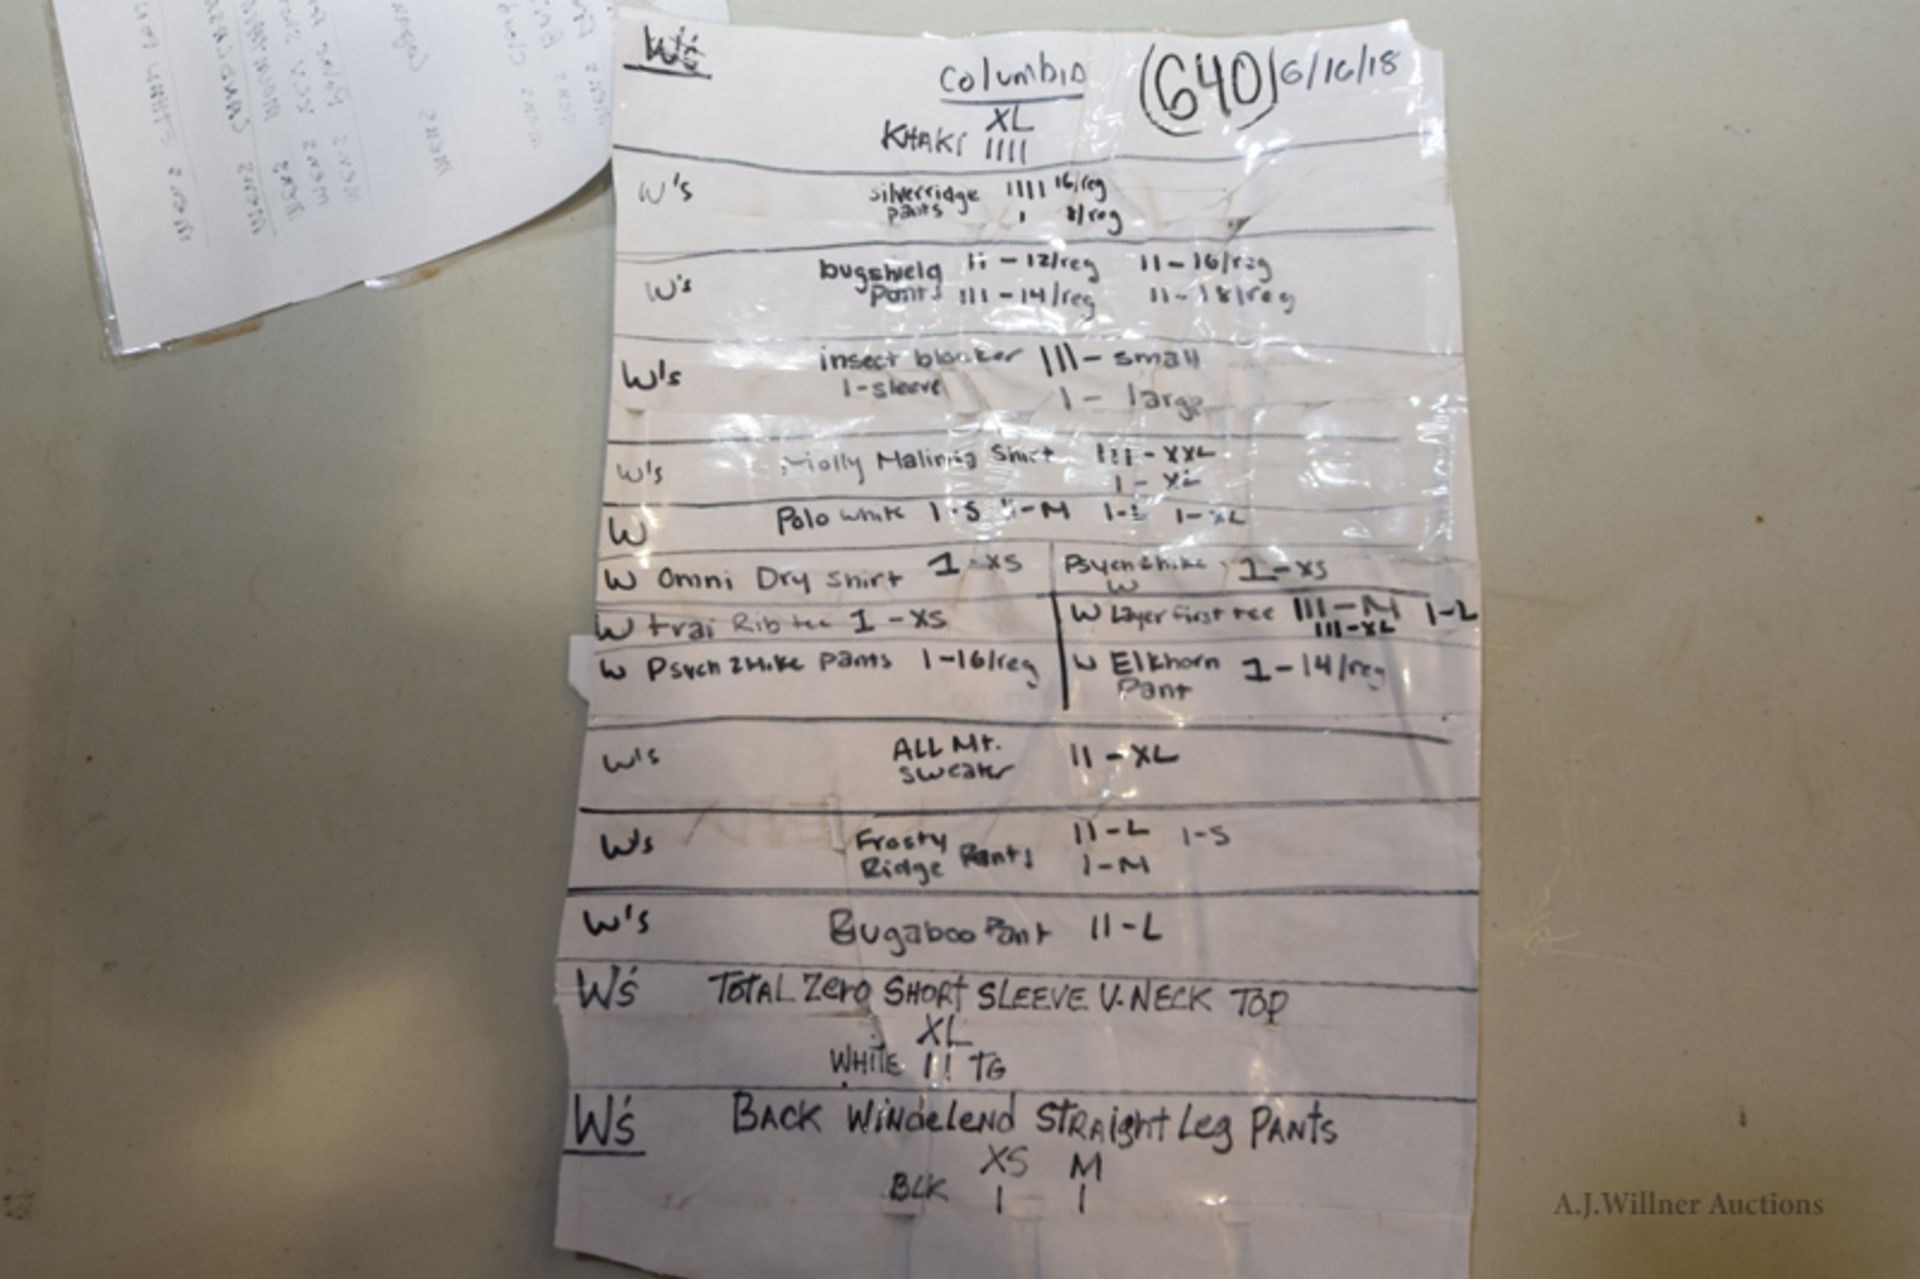 W's Columbia (640) 6/16/18
XL
KHAKI IIII
W's silverridge IIII 16/reg
pants I 8/reg
W's bugshield II - 12/reg II - 16/reg
Pants III - 14/reg II - 18/reg
W's insect blocker III - small
1-sleeve I - large
W's Molly Shirt III - XXL
I - XL
W Polo white I-S II-M I-L I-XL
W Omni Dry Shirt 1-XS
Psych 2 hike 1-XS
W
W trai Rib tee 1-XS
W Layer first tee III-M I-L
III-XL
W Psych 2 Hike Pants 1-16/reg
W Elkhorn 1-14/reg
Pant
W's ALL Mt. II-XL
Sweater
W's Frosty II-L I-S
Ridge Pants I-M
W's Bugaboo Pant II-L
W's TOTAL Zero SHORT SLEEVE V-NECK TOP
XL
WHITE II TG
W's BACK Windelend STRAight Leg PANTS
XS M
BLK I I
A.J.Willner Auctions